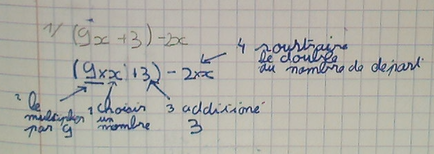 1/ (9x + 3) - 2x
(9×x + 3) - 2×x
4 soustraire le double du nombre de départ
2 le multiplier par 9
1 choisir un nombre
3 additioné 3